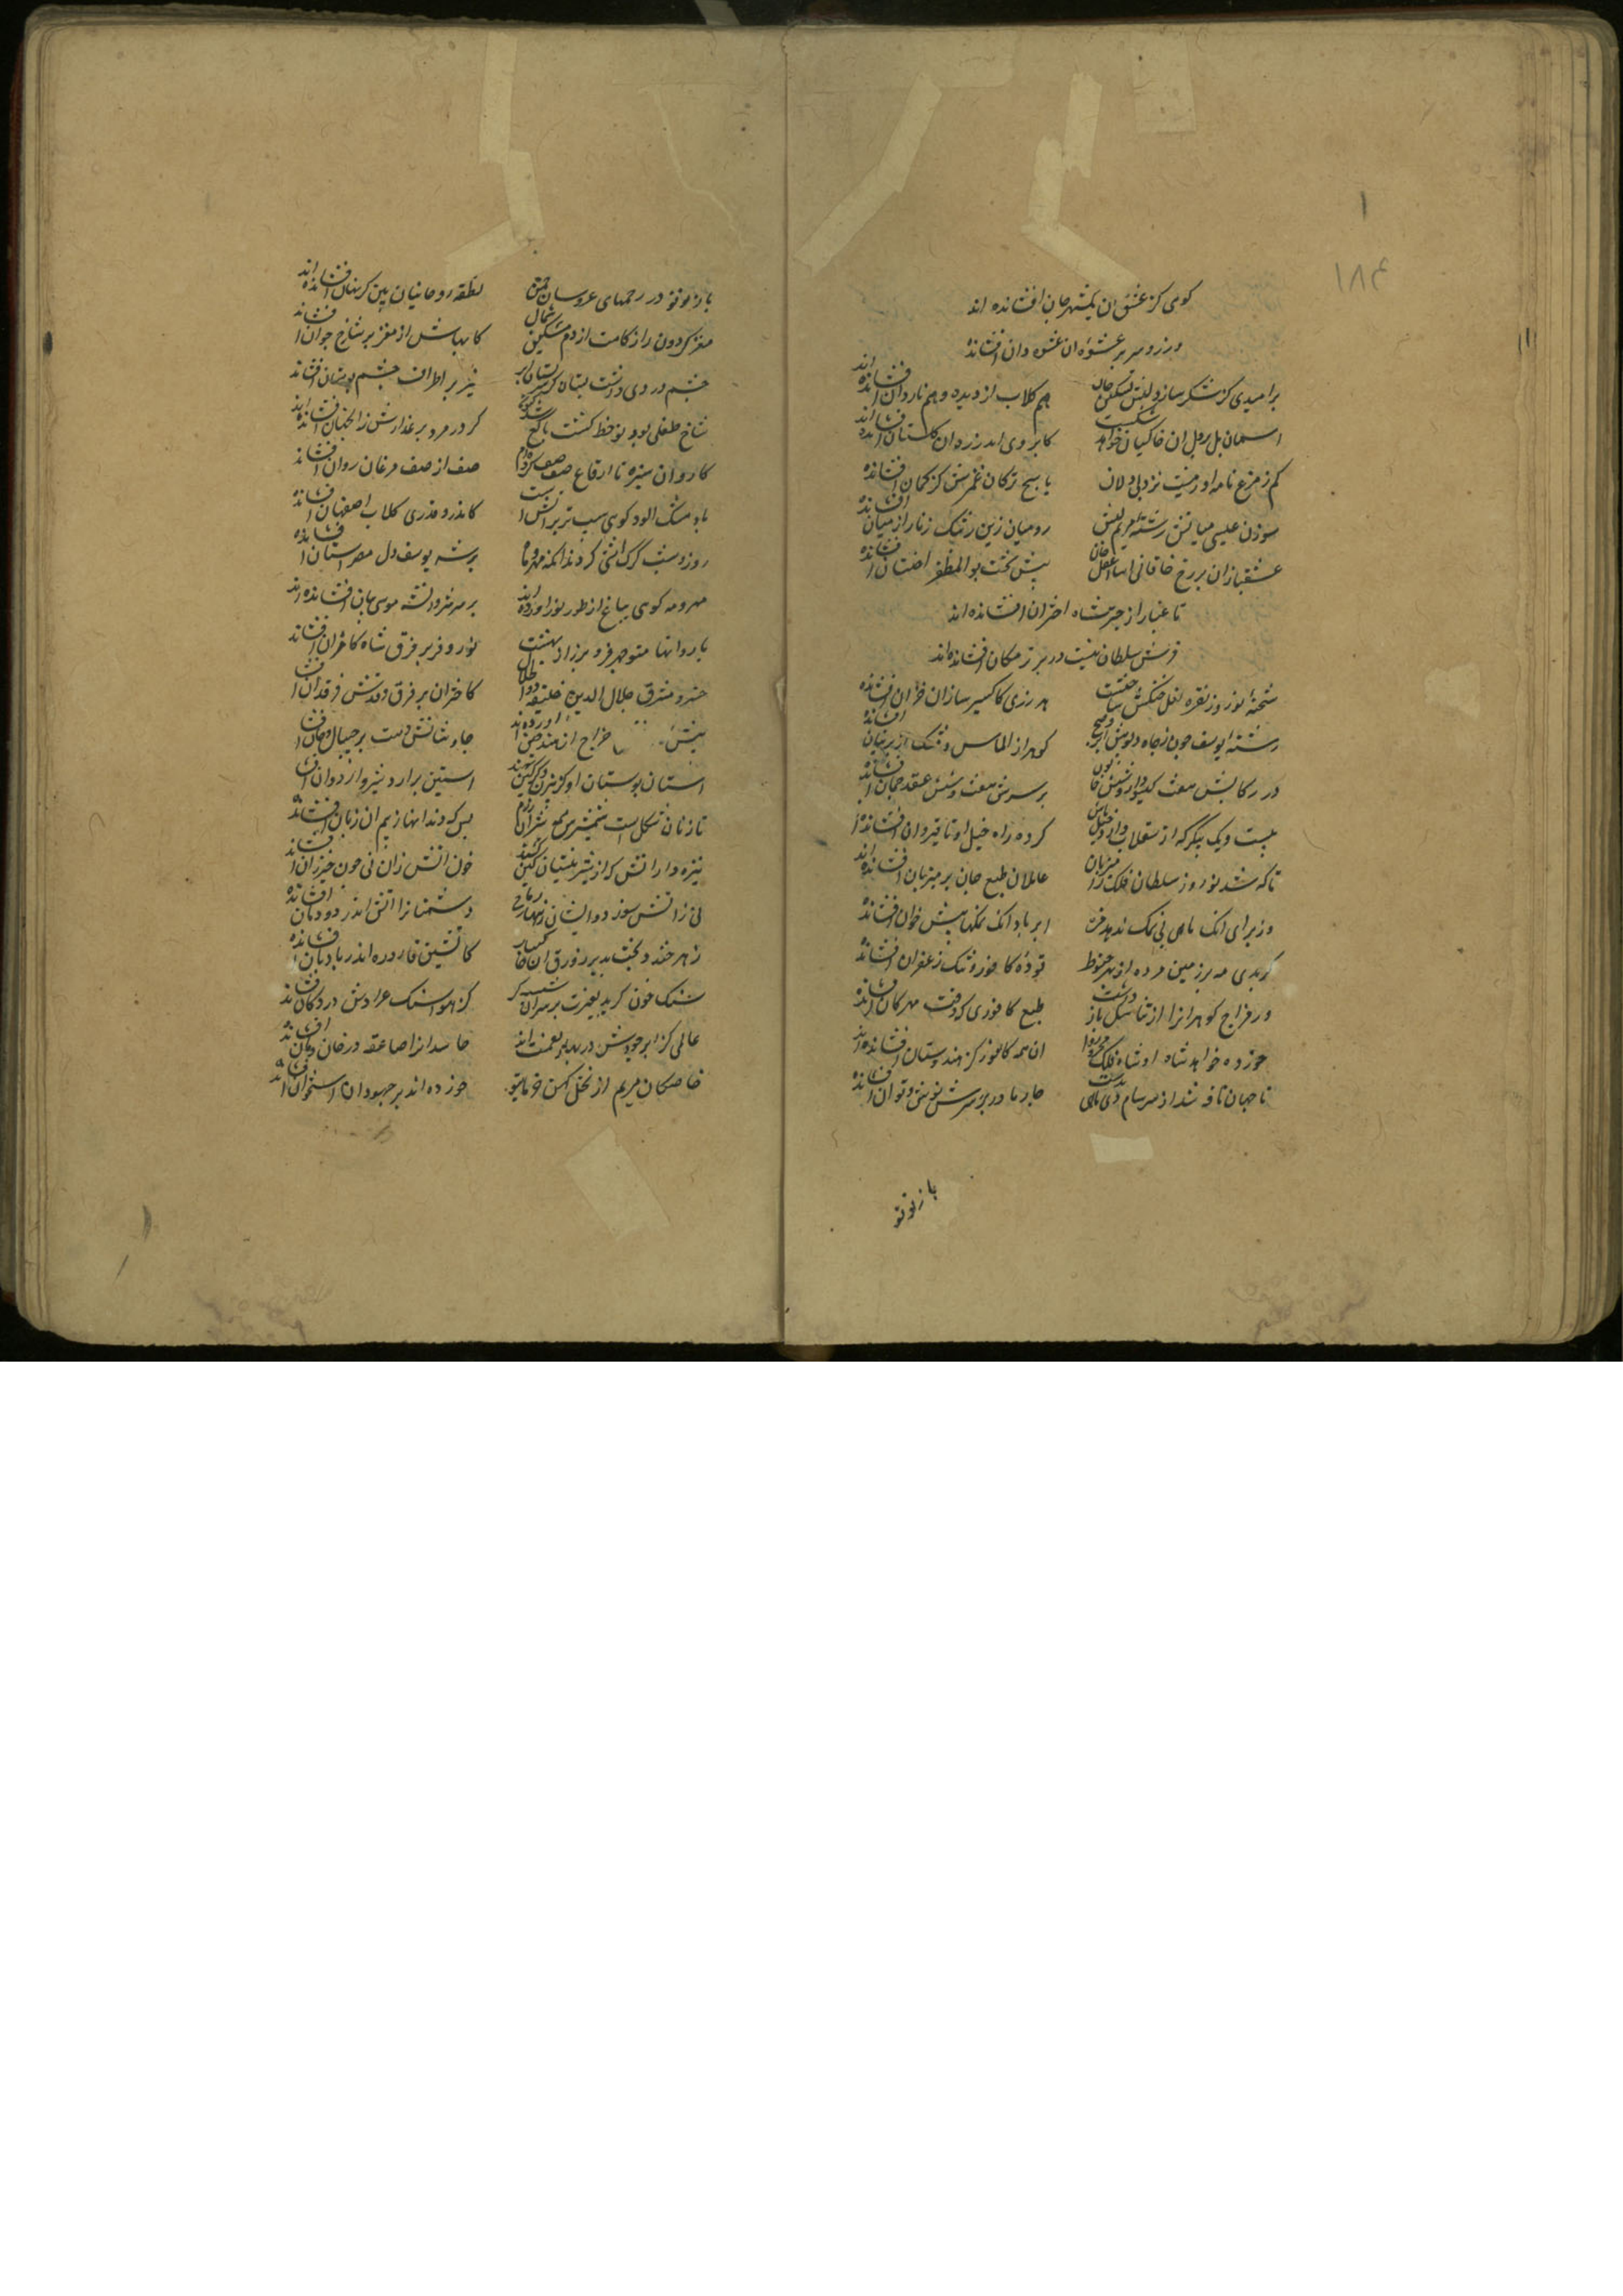 ۱۸۴
کوی کز عشق ان یکشهر جان افشانده اند
وز زر و سر بر عشوه ان عشوه دان افشانده
بر امیدی کز شکر سازد لبش تسکین جان
هم کلاب از دیده و هم ناردان افشانده اند
اسمان بل بر دل ان خاکیان خواهد شکست
کابروی اندر زه ان دلستان افشانده اند
کم ز مرغ نامه اور نیست نزد بی دلان
یاسج ترکان غمزش کز کمان افشانده
سوزن عیسی میانش رشته مریم لبش
رومیان زین رشک زنار از میان افشانده
عشقبازان بر رخ خاقانی اسا عقل جان
پیش تخت بوالمظفر اختسان افشانده
تا غبار از چتر شاه اختران افشانده اند
فرش سلطان نیست در برتر مکان افشانده اند
شحنه نوروز نقره خنکش ساخت
هر زری کاکسیر سازان خزان افشانده
رشته یوسف چون ز چاه دلو
کوهر از الماس و مشک از پرنیان افشانده
در رکابش هفت کیسودار و شش خاتون
بر سرش هفت و شش عقد جمان افشانده
بیست و یک پیکر که از سقلاب دارد خیلتاش
کرد راه خیل او تا قیروان افشانده
تا که شد نوروز سلطان فلک را میزبان
عاملان طبع جان بر میزبان افشانده اند
وز برای انک ماهی بی نمک ندهد مزه
ابر و باد انک نمکها پیش خوان افشانده
کر بدی مه بر زمین مرده از بهر حنوط
توده کافور و تنک زعفران افشانده
ور مزاج کوهران را از تناسل باز داشت
طبع کافوری که وقت مهرکان افشانده
خورده خواهد شاه او شاه فلک
ان همه کافور کز هندوستان افشانده اند
تا جهان ناقه شد از سرسام دی ماهی
چار مادر بر سرش توش و توان افشانده
باز نو نو
باز نو نو در رحمهای عروسان چمن
نطفه روحانیان بین کز نهان افشانده اند
مغز کردون را زکامست از دم مشکین شمال
کابهاش از مغز بر شاخ جوان افشانده
چشم درد داشت بستان کز سر پستان ابر
شیر بر اطراف چشم بوستان افشانده
شاخ طفلی بود نوخط کشت بالغ
کرد زمرد بر عذارش زانچنان افشانده اند
کاروان سبزه تا از قاع صفصف کرد
صف از صف مرغان روان افشانده
باد مشک الود کوی سیب تر بر اتش است
کاندرو قدری کلاب اصفهان افشانده
روز و شب کرک اشتی کردند انک مهر و ماه
بر سر یوسف دل مصراستان افشانده
مهر و مه کوی بباغ از طور نور اورده اند
بر سر شروانشه موسی بنان افشانده اند
یا روانهای منوچهر و فریبرز از بهشت
نور و فر بر فرق شاه کامران افشانده
خسرو مشرق جلال الدین خلیفه ذوالجلال
کاختران بر فرق قدرش فرقدان افشانده
خراج از هند و چین اورده اند
جاوشانش دست بر جیپال و خان افشانده
استان بوستان او کز سر
استین بر ارد شیر و اردوان افشانده
تا زبان شکل است شمشیرش
بس که دندانها ز بیم ان زبان افشانده
نیزه دارانش که از شیر نیستان کین کشند
خون اتش زان نی چون خیزران افشانده
نی ز اتش سوزد و ایشان ز نیها رماح
دشمنانرا اتش اندر دودمان افشانده
زهر خندد بخت بد بر زورق ان خاکسار
کاتشین قاروره اندر بادبان افشانده
سنک خون کرید بعبرت بر سر ان شیشه کر
کز هوا سنک عراده اش در دکان افشانده
عالمی کز ابر جودش در بهار نعمت اند
حاسدانرا صاعقه در خان و مان افشانده
خاصکان مریم از نخل کهن خرمای تر
خورده اند بر جهودان استخوان افشانده اند